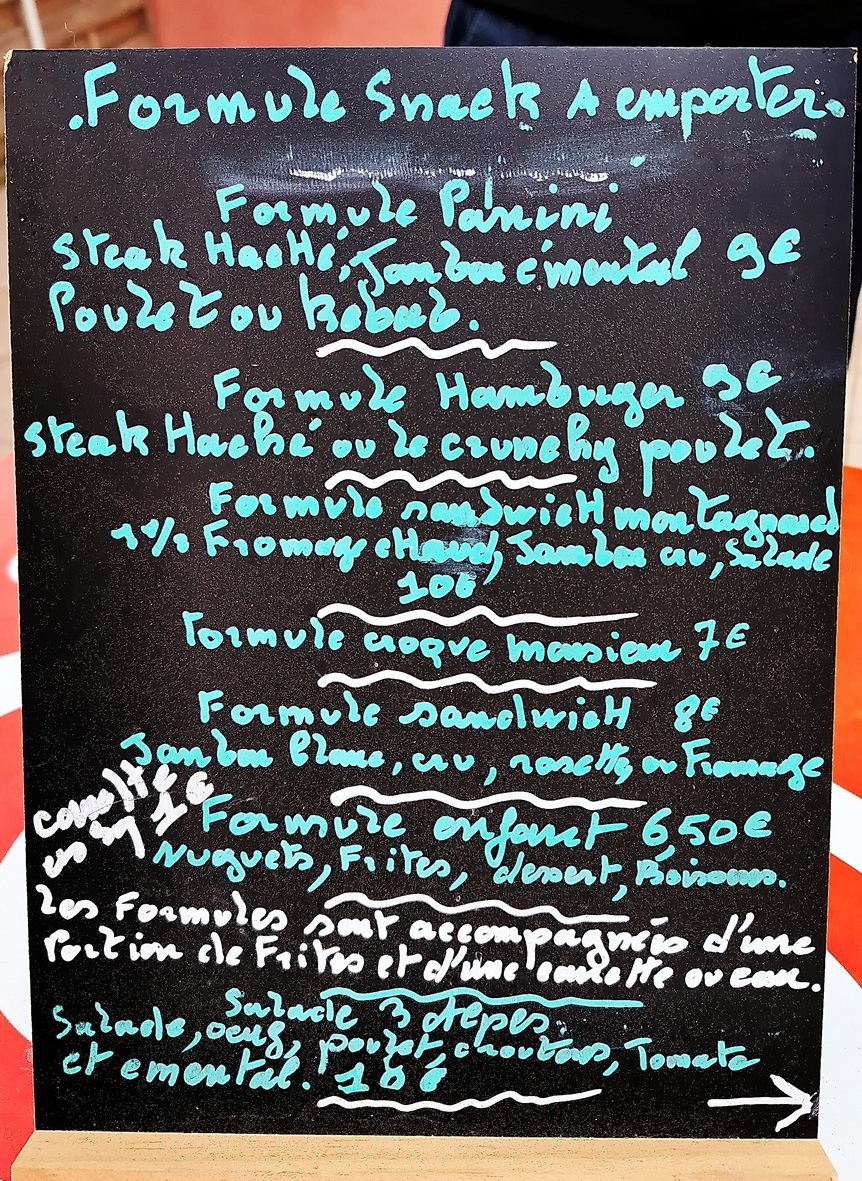 .Formule Snack A emporter.
Formule Panini
Steak Haché, Jambon émental 9€
Poulet ou Kebab.
Formule Hamburger 9€
Steak Haché ou le crunchy poulet.
Formule sandwich montagnard
Fromage chaud, Jambon cru, Salade
10€
Formule croque monsieur 7€
Formule sandwich 8€
Jambon blanc, cru, rosette, ou Fromage
canette
en sus 1€
Formule enfant 6,50€
Nuguets, Frites, dessert, Boisons.
Les Formules sont accompagnéis d'une
Portion de Frites et d'une canette ou eau.
Salade 3 Alpes.
Salade, oeuf, poulet, croutons, Tomate
et emental. 10€